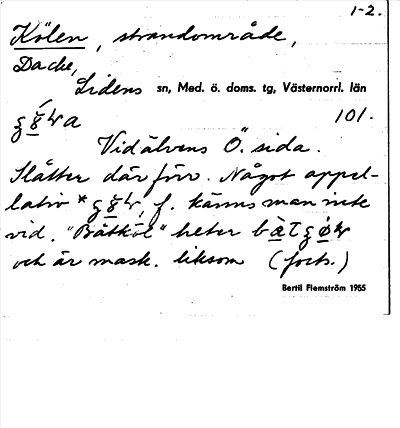 1-2.
Kölen, strandområde,
Dacke,
Lidens sn, Med. ö. doms. tg, Västernorrl. län
101.
Vid älvens Ö. sida.
Slåtter där förr. Något appel-
lativ * f. känns man icke
vid. "Båtköl" heter
och är mask. liksom (forts.)
Bertil Flemström 1955